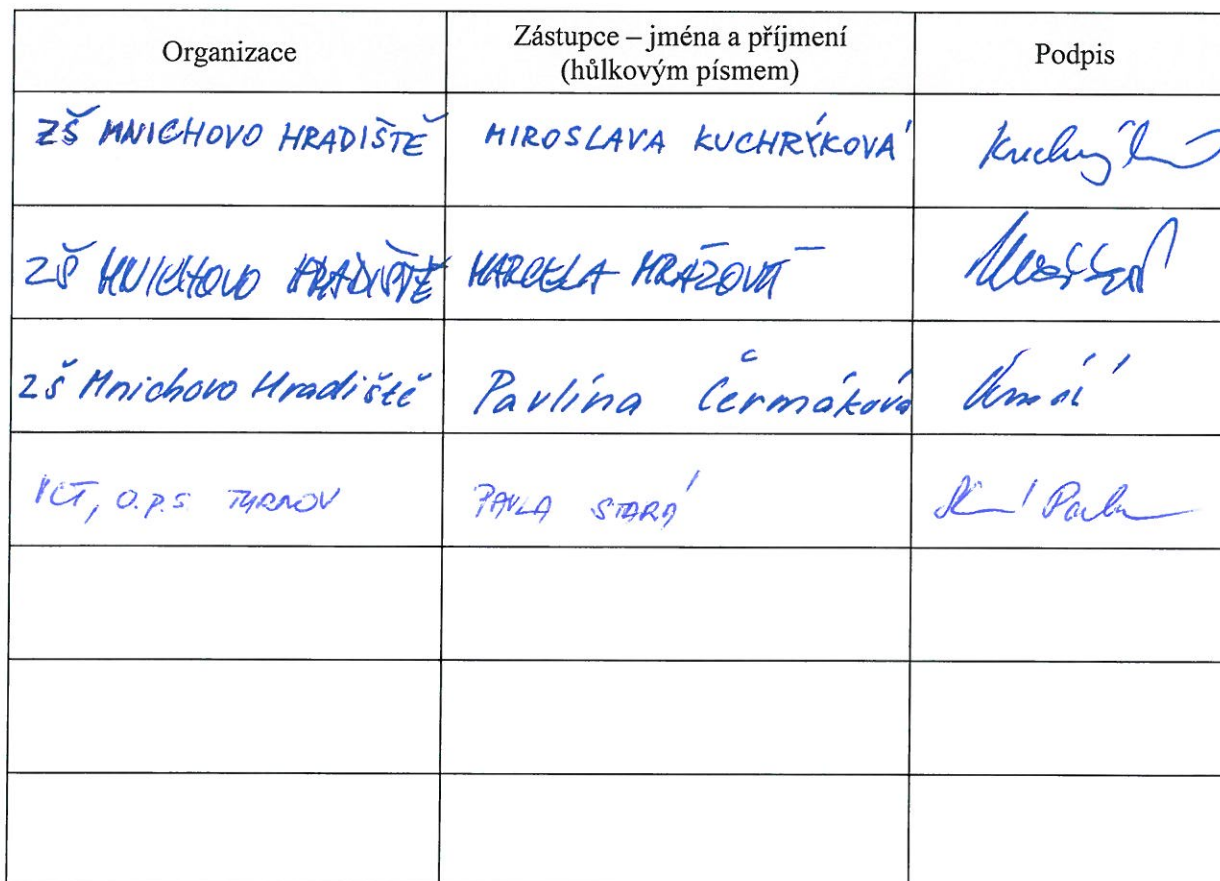 Organizace
Zástupce – jméno a příjmení
(hůlkovým písmem)
Podpis
ZŠ MNICHOVO HRADIŠTĚ MIROSLAVA KUCHRÝKOVÁ
ZŠ MNICHOVO HRADIŠTĚ MARCELA MRÁZOVÁ
ZŠ Mnichovo Hradiště Pavlína Čermáková
O.P.S. TURNOV PAVLA STARÁ